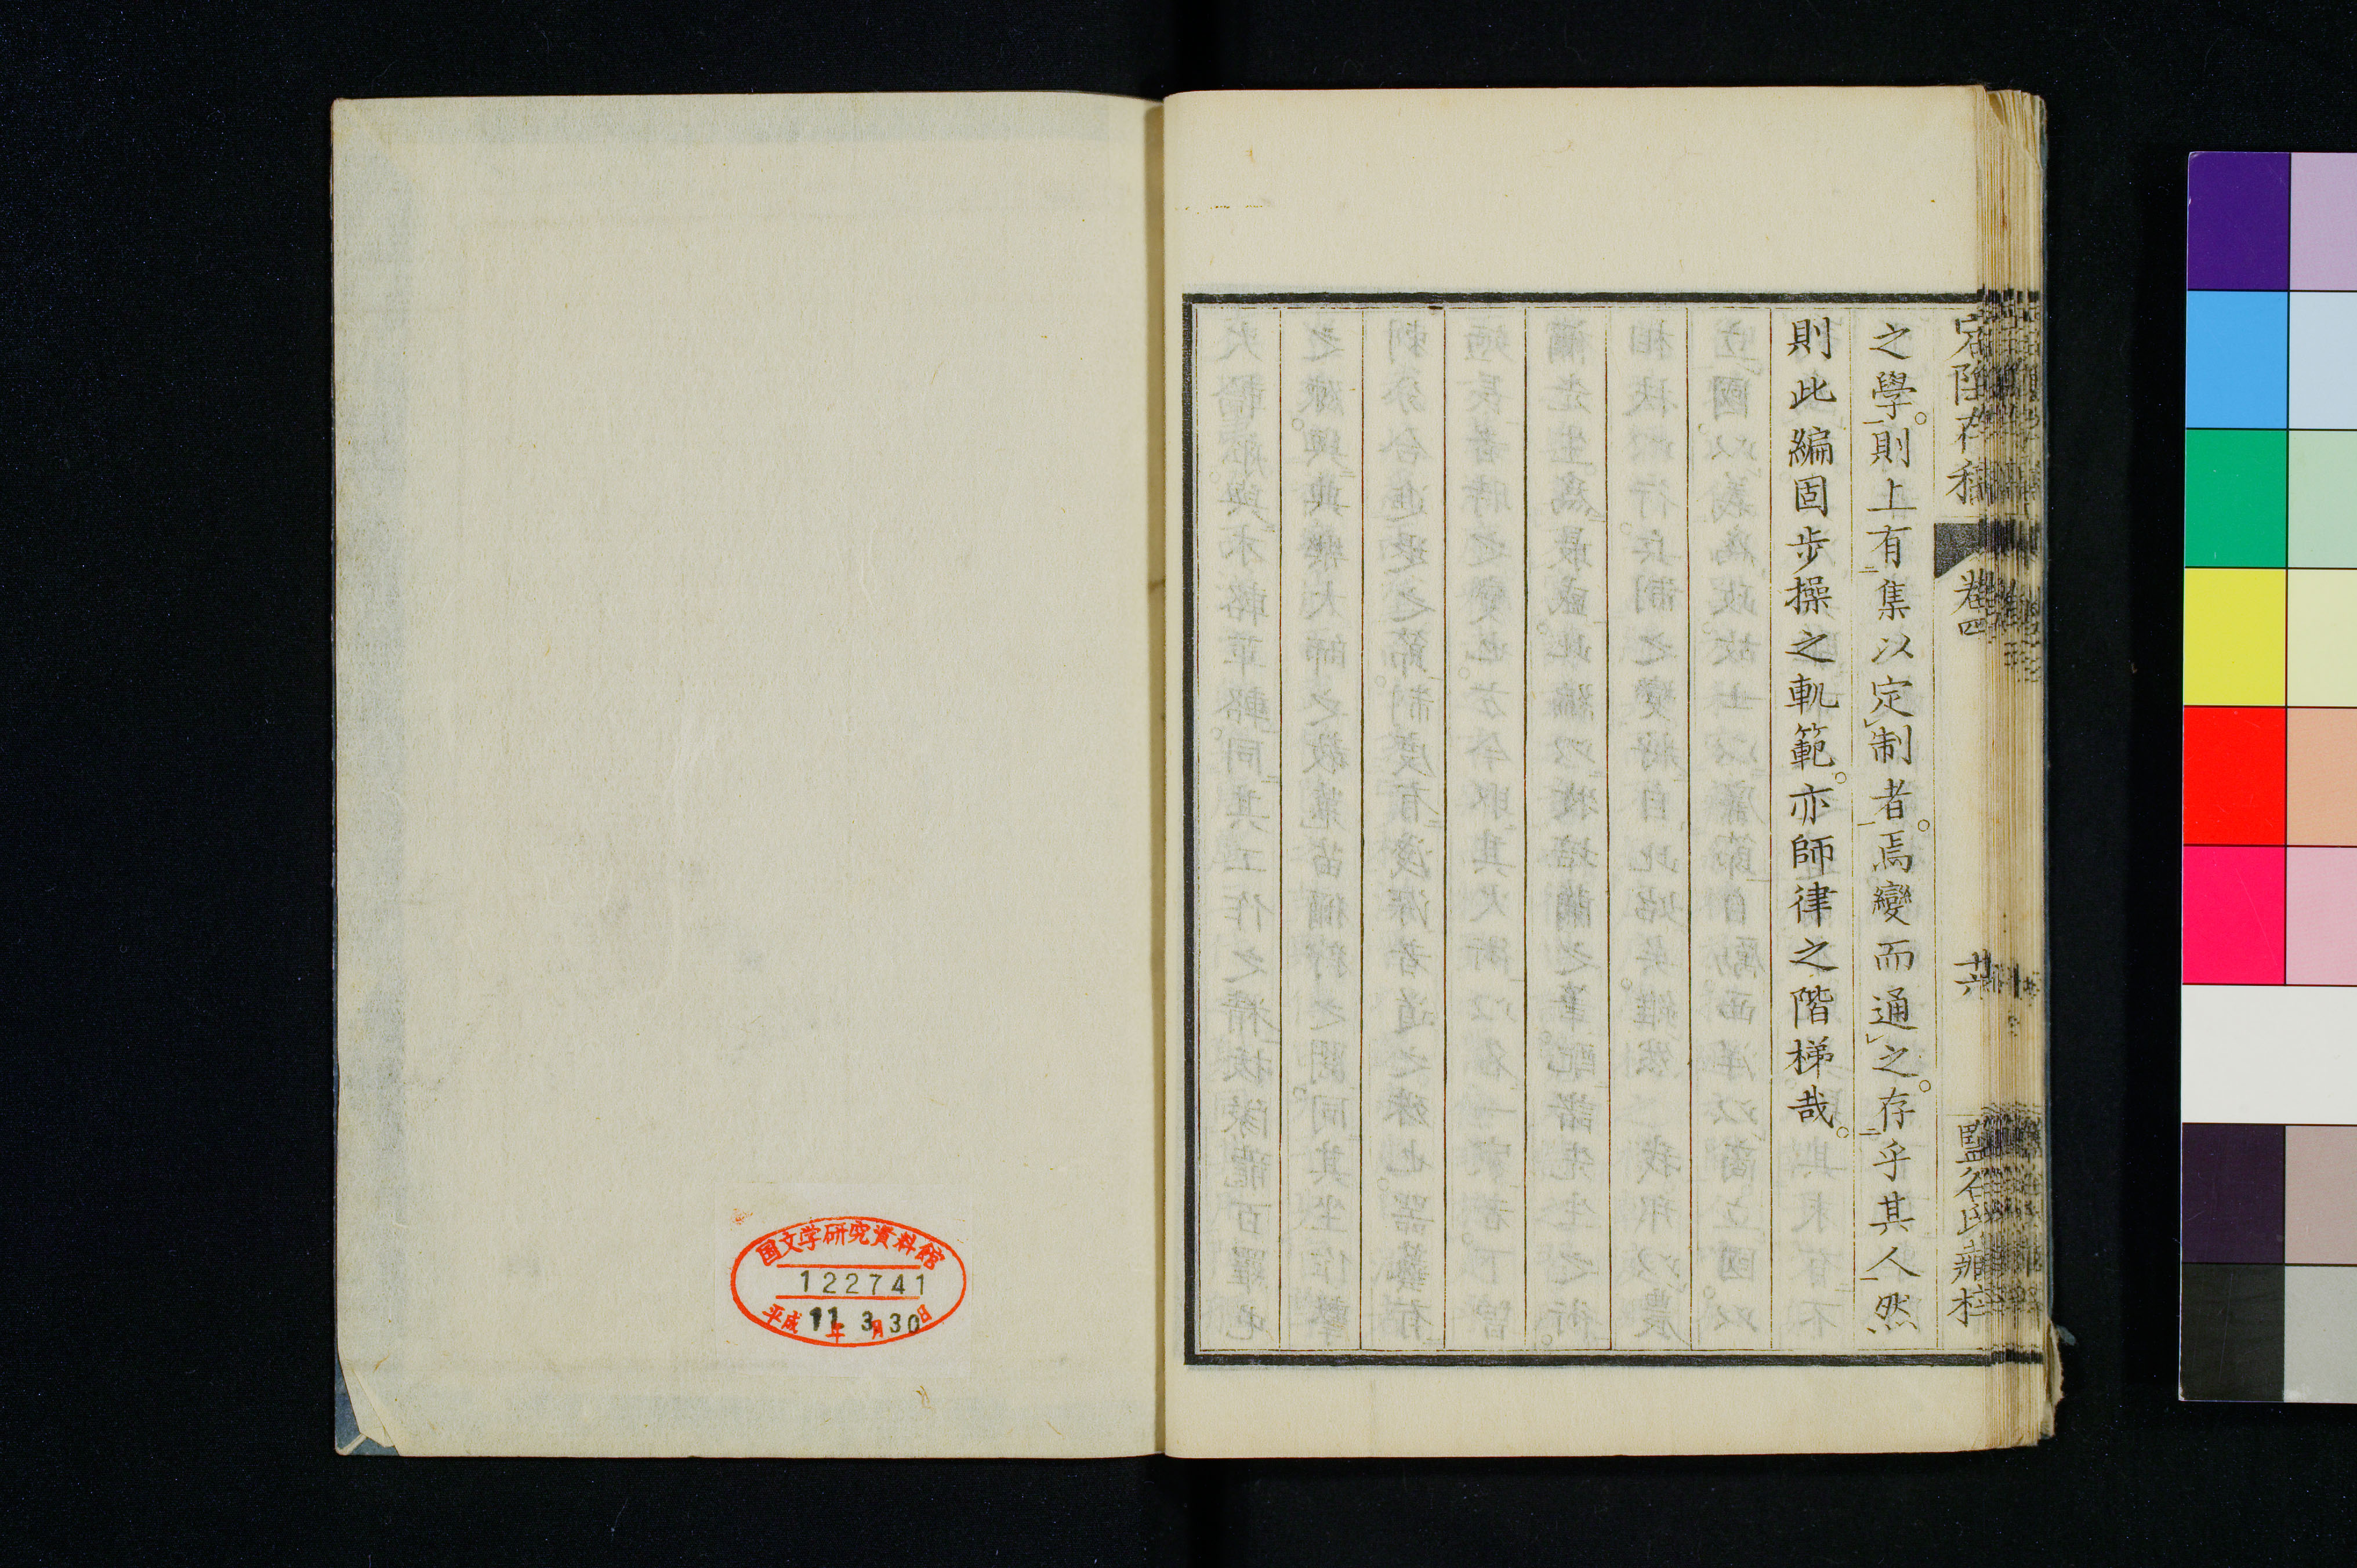 之學。則上有集以定制者。焉變而通之。存乎其人然
則此編固步操之軌範。亦師律之階梯哉。
存稿
卷四
廿六
国文学研究資料館
122741
平成11年3月30日